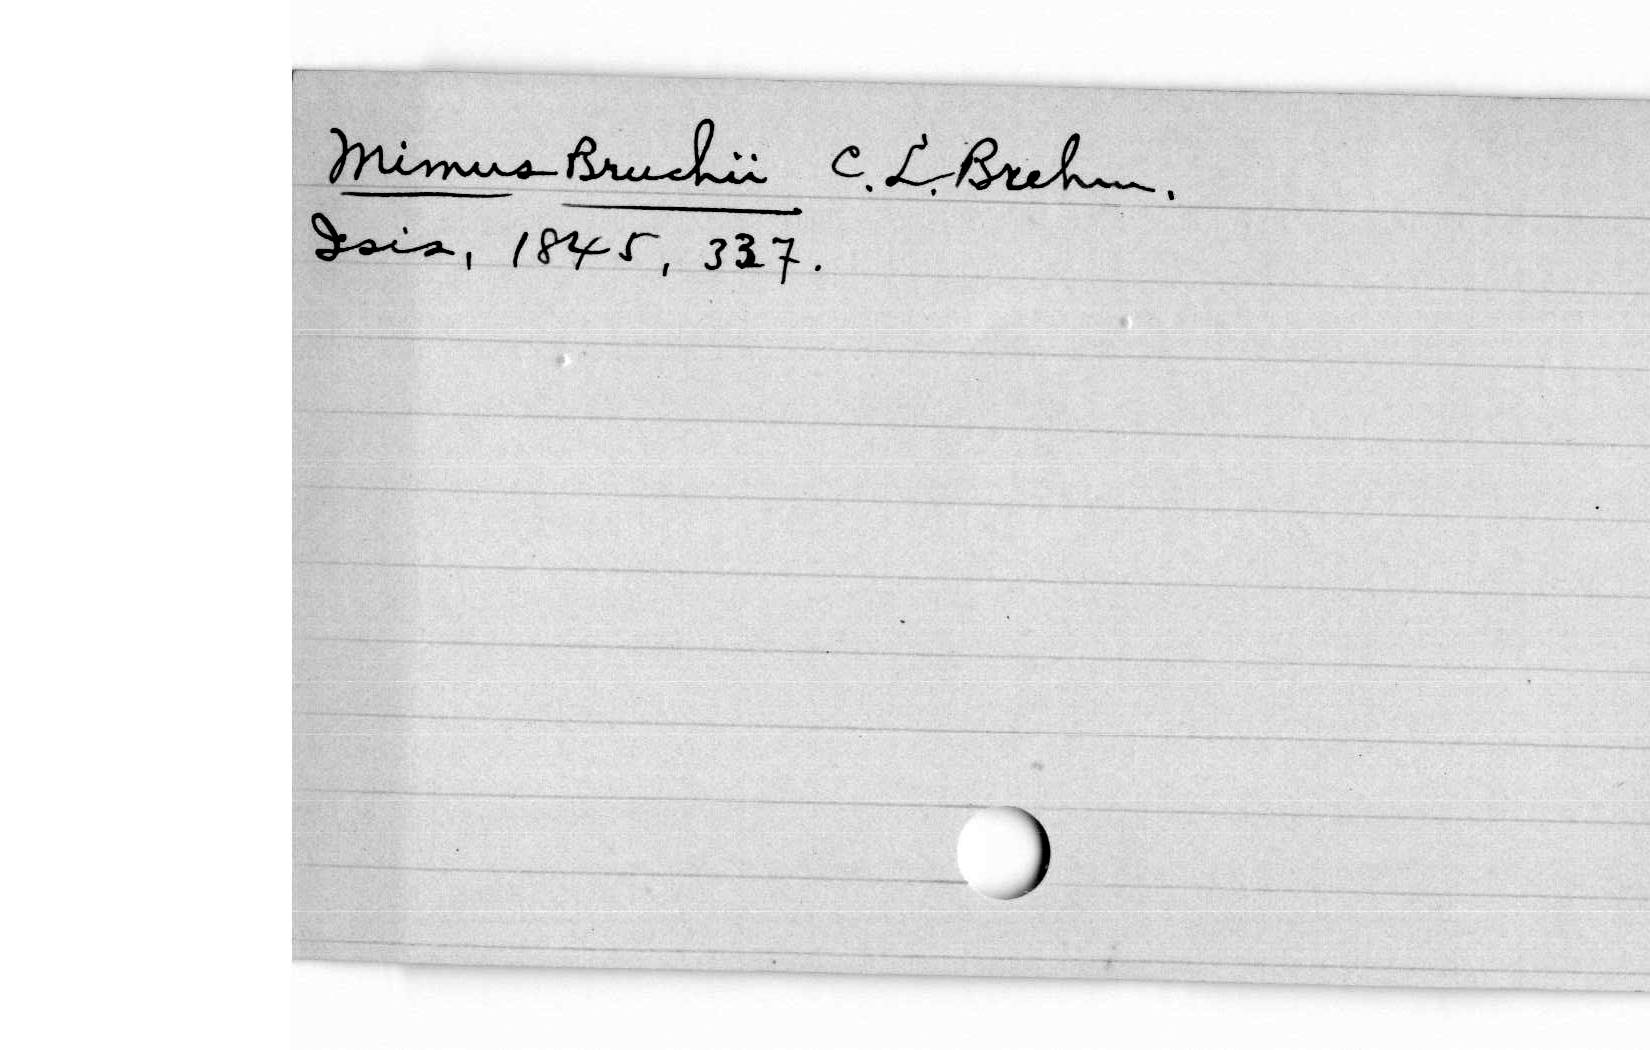 Mimus Bruchii C. L. Brehm.
Isis, 1845, 337.